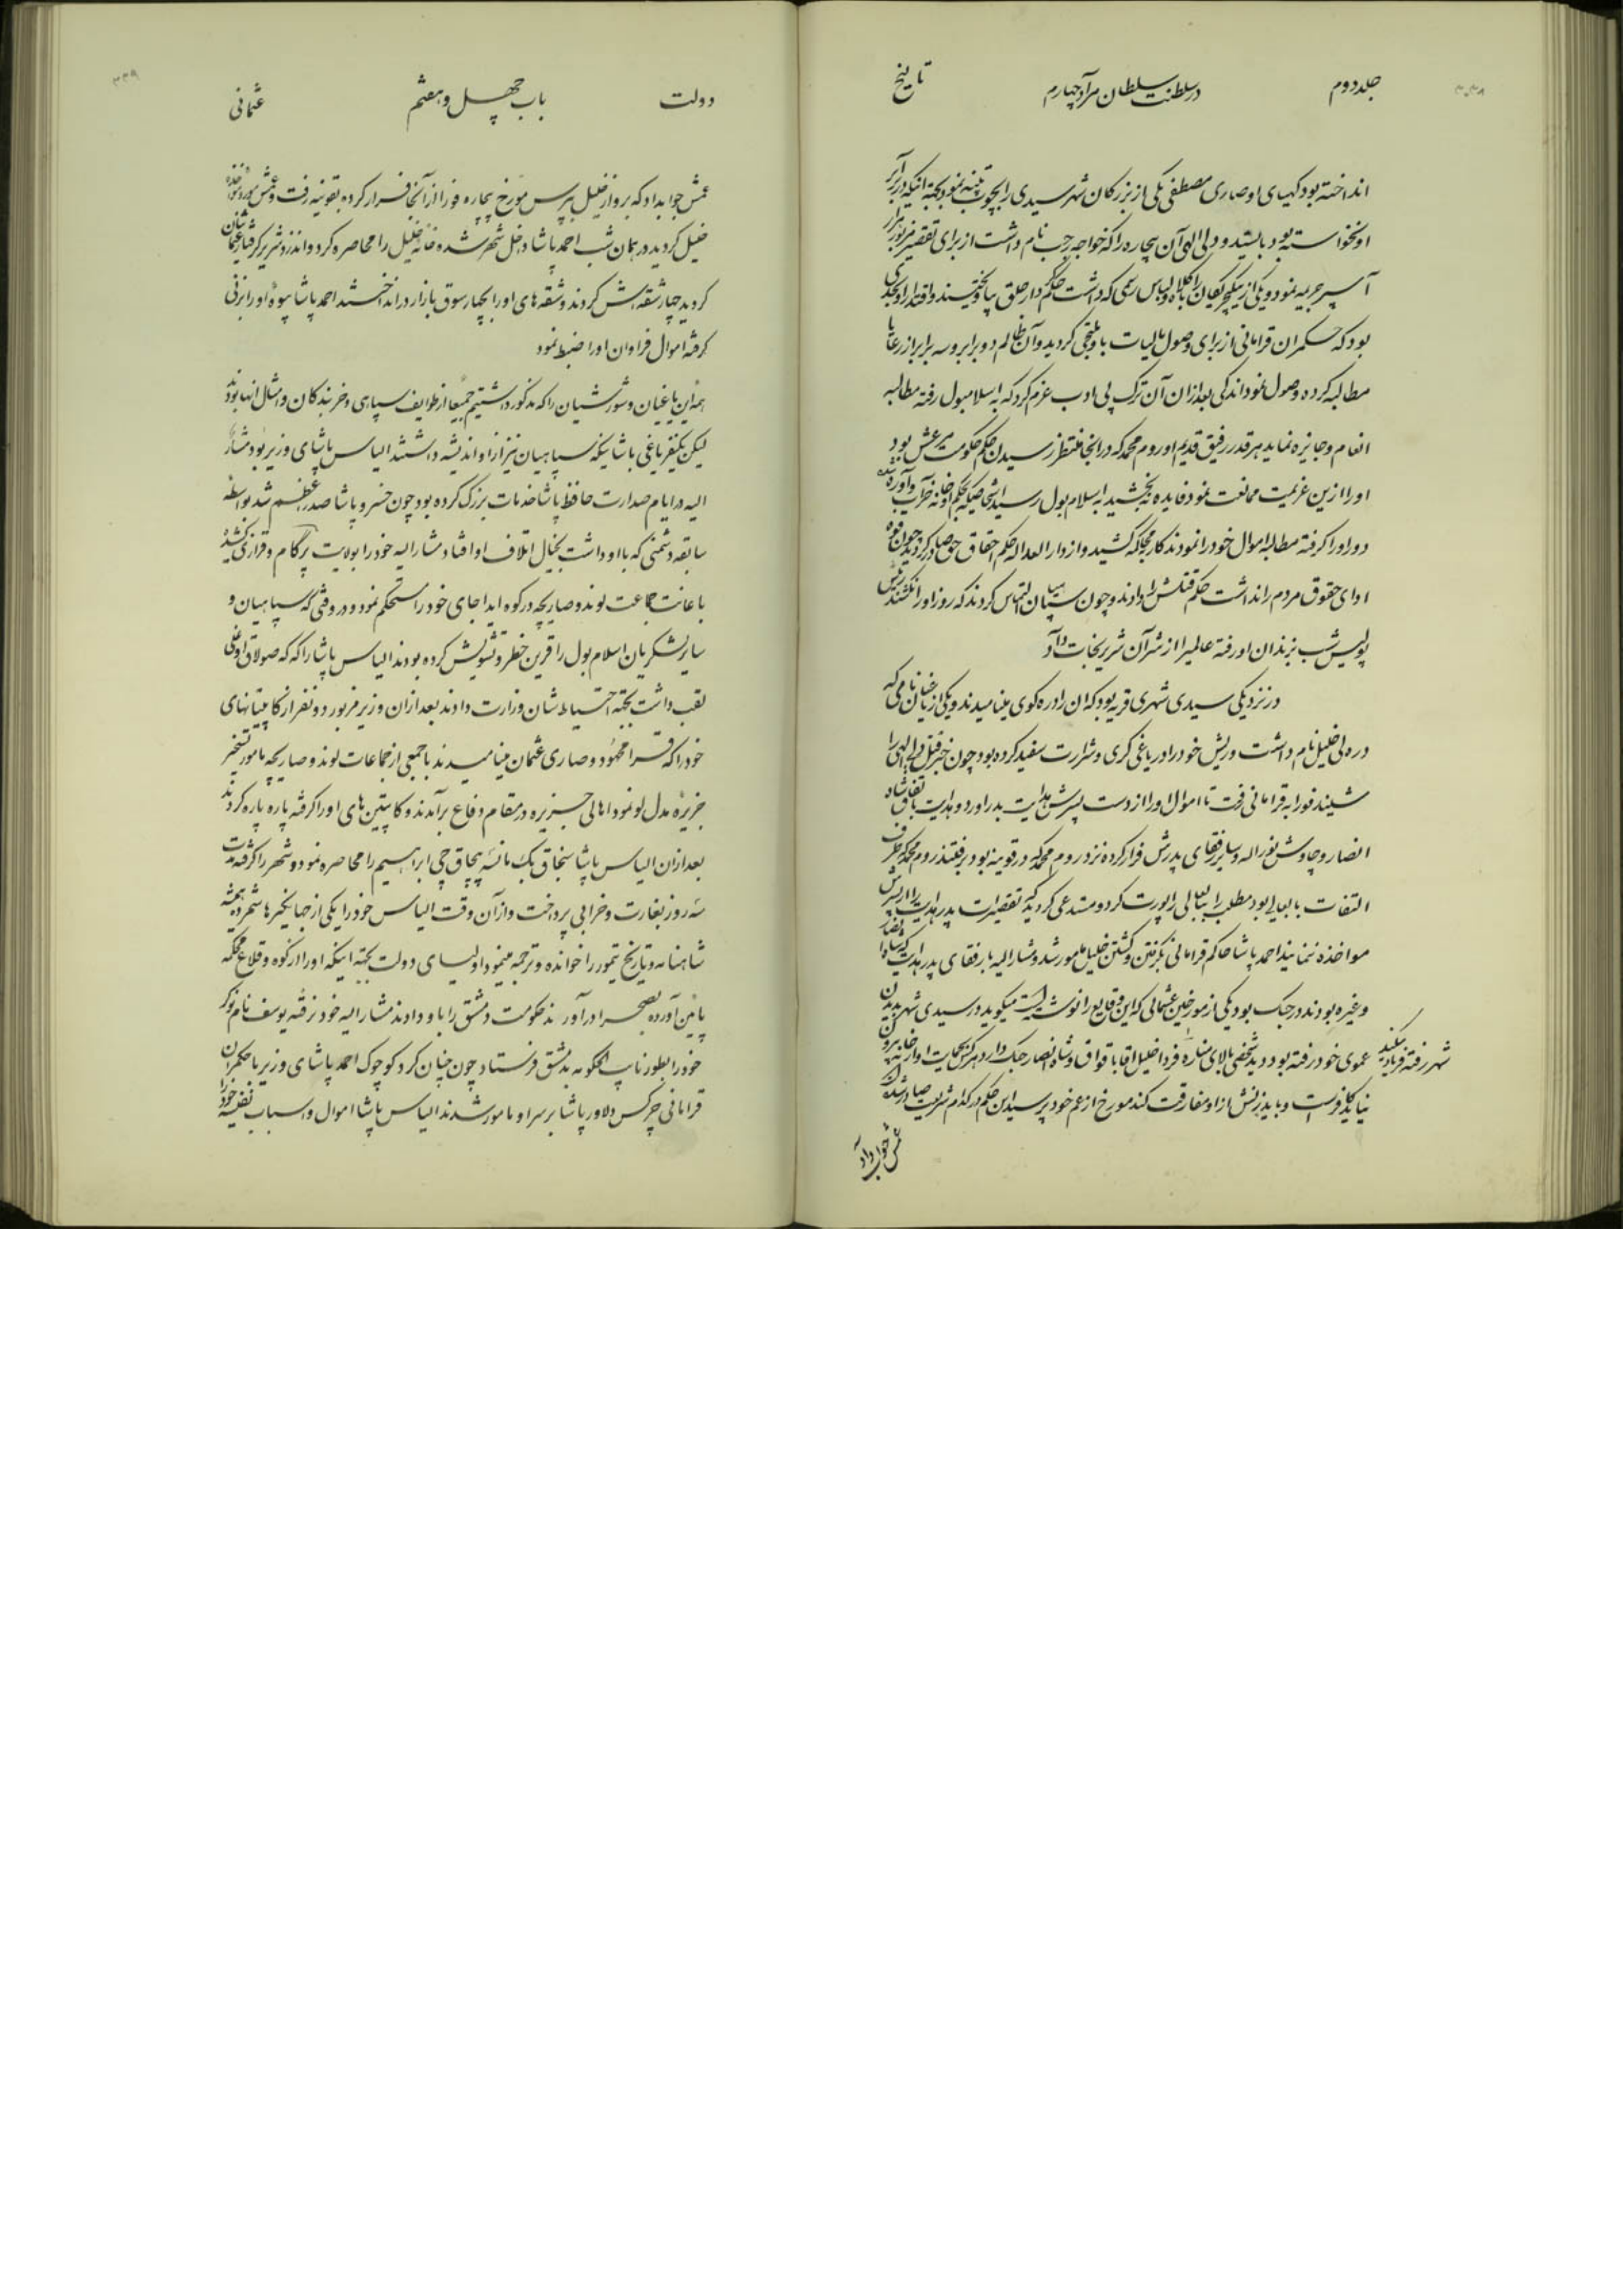 جلد دوم
در سلطنت سلطان مراد چهارم
تاریخ
انداخته بود کهیای او صاری مصطفی یکی از بزرگان شهر سیدی را بچوب تنبیه نمود بجهة اینکه در برابر
او نخواسته بود بایستد و دلی الهی آن بیچاره را که خواجه چپ نام داشت از برای تقصیر مزبور هزار
آسپر جریمه نمود و یکی از ینکچریکعیان را با کلاه و لباس رسمی که داشت حکم دار حلق بیاویختند و اقتدار او بحدی
بود که حکمران قرامانی از برای وصول مالیات باو ملتجی گردید و آن ظالم دو برابر و سه برابر از رعایا
مطالبه کرده وصول نمود اندکی بعد از ان آن ترک بی ادب عزم کرد که به اسلامبول رفته مطالبه
انعام و جایزه نماید هر قدر رفیق قدیم او روم محمد که در انجا منتظر رسیدن حکم حکومت مرعش بود
او را ازین عزیمت ممانعت نمود فایده نبخشید به اسلام بول رسید اشخاصیکه بحکم او خانه خراب و آواره شده
دور او را گرفته مطالبه اموال خود را نمودند کار بمحاکمه کشید و از دار العداله حکم احقاق حق صادر گردید چون قوه
ادای حقوق مردم را نداشت حکم قتلش را دادند و چون سپاهیان التماس کردند که روز او را نکشند رئیس
پولیس شب بزندان او رفته عالمیرا از شر آن شریر نجات داد
در نزدیکی سیدی شهری قریه بود که ان را دره کوی مینامیدند و یکی از یاغیان نامی که
دره لی خلیل نام داشت و ریش خود را در یاغی گری و شرارت سفید کرده بود چون خبر قتل دلی الهی را
شنیند فورا به قرامانی رفت تا اموال او را از دست پسرش هدایت بدر اورد و هدایت باتفاق شاه
انصار و چاوش نورالله و سایر رفقای پدرش فرار کرده نزد روم محمد که در قونیه بود برفتند روم محمد که طرف
التفات بابعالی بود مطلب را ببابعالی راپورت کرد و مستدعی گردید که تقصیرات پدر هدایت را از پسرش
مواخذه ننمایند احمد پاشا حاکم قرامانی بگرفتن و کشتن خلیل مامور شد و مشارالیه با رفقای پدر هدایت که شاه انصار
و غیره بودند در جنک بود یکی از مورخین عثمانی که این وقایع را نوشته است میکوید در سیدی شهر بدیدن
عموی خود رفته بود دید شخصی بالای مناره فردا خلیل اقا با قواق و شاه انصار جنک دارد هر کس بحمایت او از خانه بیرون
شهر رفته فریاد میکند
نیاید کافرست و باید زنش از او مفارقت کند مورخ از عم خود پرسید این حکم در کدام شریعت صادر شده
عمش جواب داد
دولت
باب چهل و هفتم
عثمانی
۳۳۹
عمش جوابداد که برو از خلیل بپرس مورخ بیچاره فورا از آنجا فرار کرده بقونیه رفت و عمش
خلیل گردید در همان شب احمد پاشا داخل شهر شده خانه خلیل را محاصره کرد و اندزد شریر گرفتار
گردید چهار شقه اش کردند و شقه های او را بچهار سوق بازار در انداختند احمد پاشا بیوه او را بزنی
گرفته اموال فراوان او را ضبط نمود
همه این یاغیان و شورشیان را که مذکور داشتیم جمیعا از طوایف سپاهی و خربندکان و امثال انها بودند
لیکن یکنفر یاغی باشا نیکه سپاهیان نیز از او اندیشه داشتند الیاس پاشای وزیر بود مشار
الیه در ایام صدارت حافظ پاشا خدمات بزرک کرده بود چون خسرو پاشا صدر اعظم شد بواسطه
سابقه دشمنی که با او داشت بخیال اتلاف او افتاد مشارالیه خود را بولایت پرگام و قرار کشید
باعانت جماعت لوند و صاریچه در کوه ایدا جای خود را مستحکم نمود و در وقتی که سپاهیان و
سایر لشکریان اسلام بول را قرین خطر و تشویش کرده بودند الیاس پاشا را که که صولاق اوغلی
لقب داشت بجهة احتیاط شان وزارت دادند بعد ازان وزیر مزبور دو نفر از کاپیتانهای
خود را که قرا محمود و صاری عثمان مینامیدند با جمعی از جماعات لوند و صاریچه مامور تسخیر
جزیره مدللو نمود اهالی جزیره در مقام دفاع برآمدند و کاپیتین های او را گرفته پاره پاره کردند
بعد ازان الیاس پاشا سنجاق بک مانسه پیچاق چی ابراهیم را محاصره نمود و شهر را گرفته مدت
سه روز بغارت و خرابی پرداخت و از آن وقت الیاس خود را یکی از جهانگیرها شمرده همیشه
شاهنامه و تاریخ تیمور را خوانده و ترجمه مینمود اولیای دولت بجهة اینکه او را از کوه و قلاع محکمه
پائین آورده بصحرا در آورند حکومت دمشق را باو دادند مشارالیه خود نرفته یوسف نام نوکر
خود را بطور نایب الحکومه بدمشق فرستاد چون چنان کرد کوچوک احمد پاشای وزیر با حکمران
قرامانی چرکس دلاور پاشا بر سر او مامور شدند الیاس پاشا اموال و اسباب نفیسه خود را